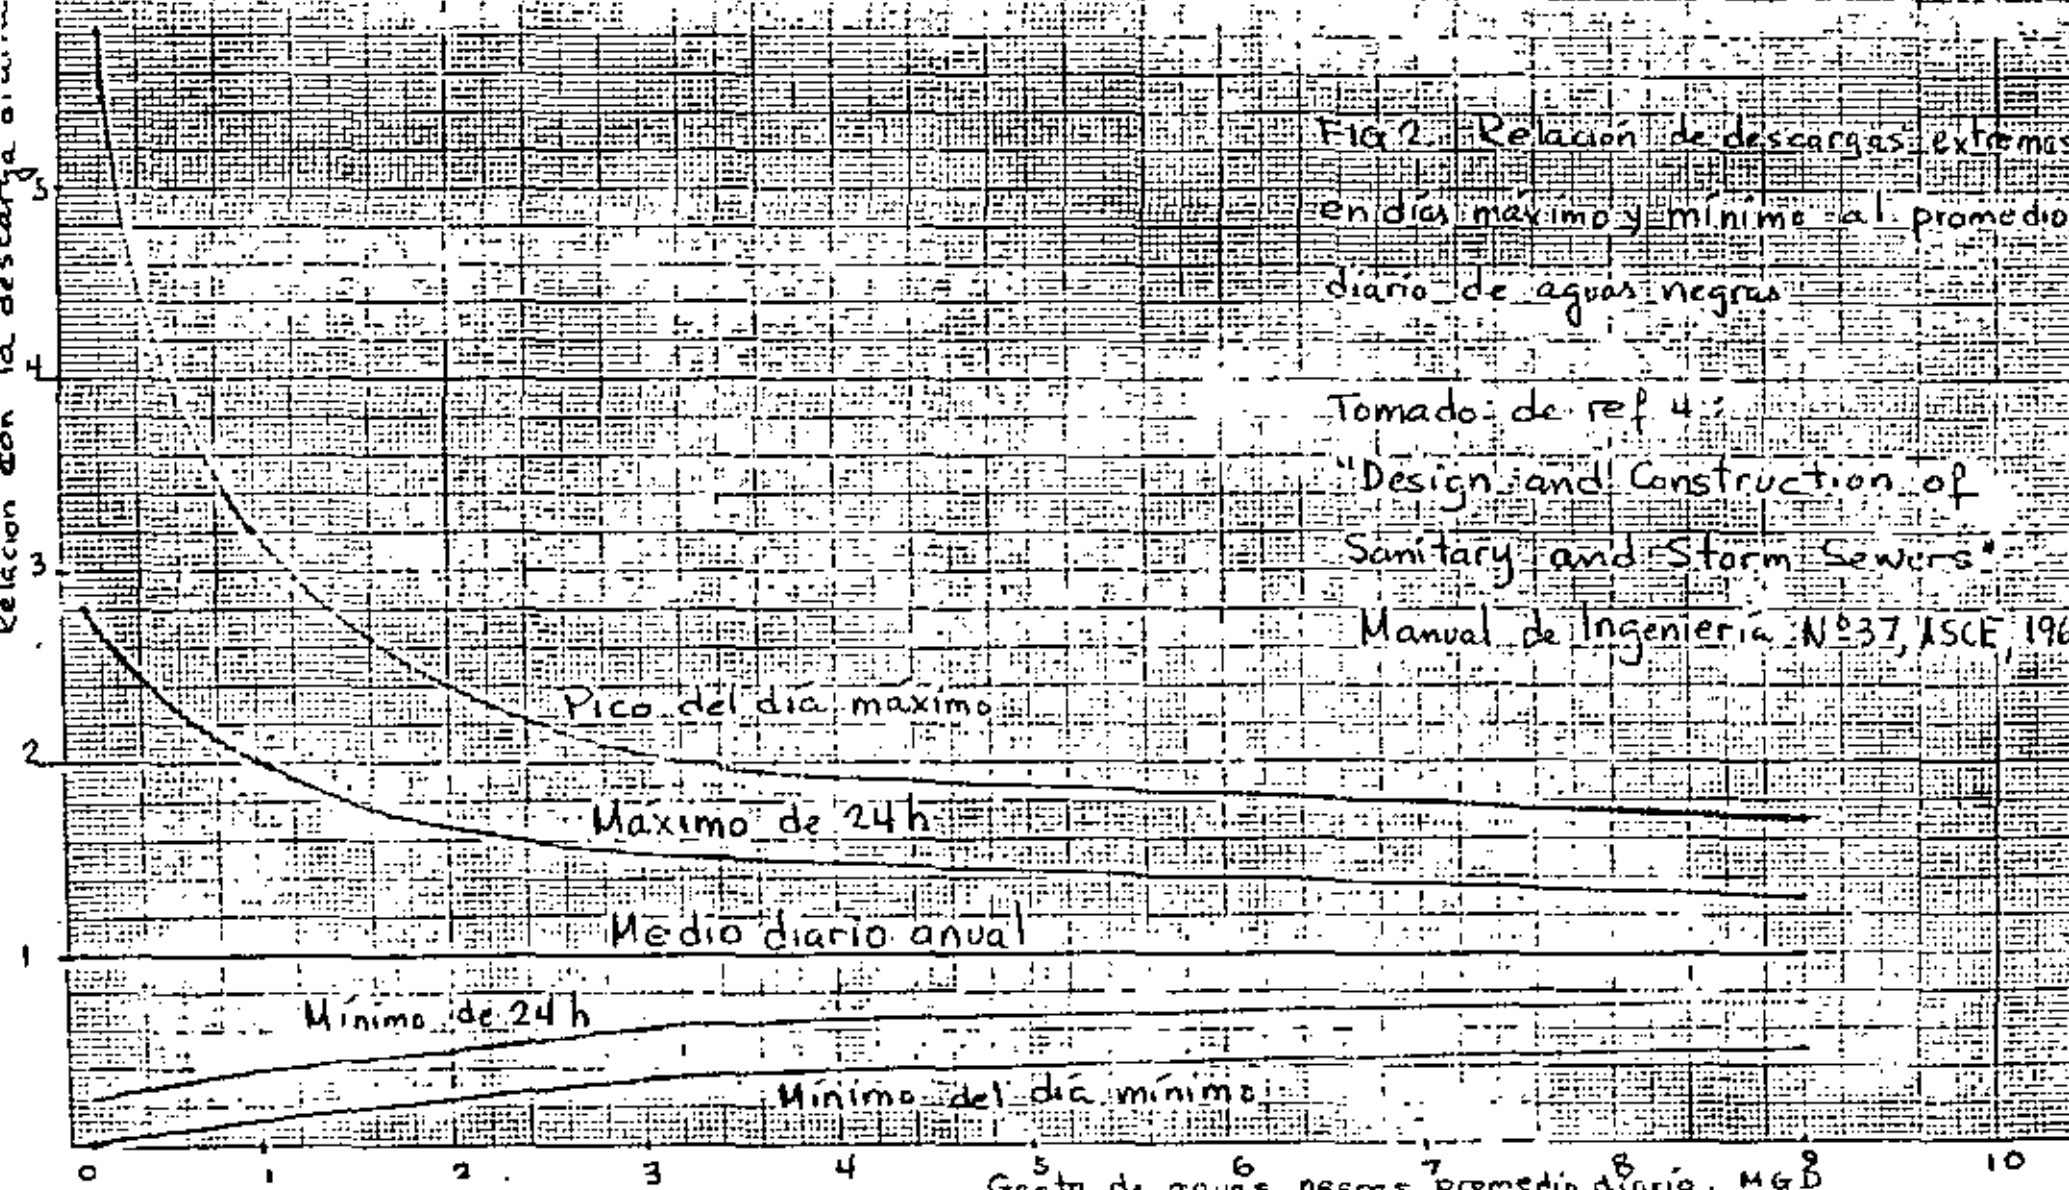 Relación con la descarga
5
4
3
2
1
Fig 2. Relación de descargas extremas
en días máximo y mínimo al promedio
diario de aguas negras
Tomado de ref 4:
"Design and Construction of
Sanitary and Storm Sewers"
Manual de Ingeniería Nº 37, ASCE, 196
Pico del día máximo
Máximo de 24 h
Medio diario anual
Mínimo de 24 h
Mínimo del día mínimo
0 1 2 3 4 5 6 7 8 9 10
Gasto de aguas negras promedio diario, MGD